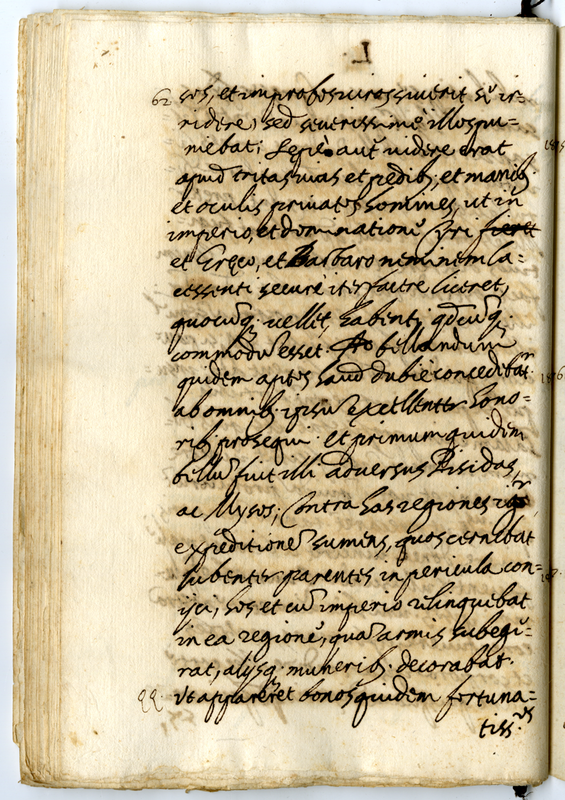 L
62 sos, et improbos viros siverit se ir=
ridere, sed severissime illos pu=
niebat; Sepè aut videre erat
apud tritas vias et pedib, et manib
et oculis privatos homines, ut in
imperio, et dominatione Cyri fieret
et Greco, et Barbaro neminem la=
cessenti secure iter facere liceret,
quocuq. vellet, habenti qdcuq.
commodu esset. Ad bellandum
quidem aptos haud dubie concedebat
ab omnib. ipsu Excellenter hono=
rib. prosequi. et primum quidem
bellu fuit illi adversus Pisidas,
ac Mysos; Contra has regiones
expeditione sumens, quos cernebat
lubenter parentes in pericula con=
ijci, hos et cu imperio relinquebat
in ea regione, qua armis subegi=
rat, alijsq. munerib. decorabat.
Ut appareret bonos quidem fortuna=
tiss.os